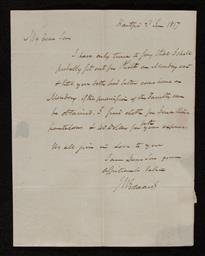 Hartford 23 June 1817
My dear Son
I have only time to say that I shall
probably set out for on Monday next
& that you both had better come home on
Monday, if the permission of the Faculty can
be obtained. I send cloth for
pantaloons & 20 Dollars for both your expenses
We all join in love to you
I am Dear Son your
affectionate Father